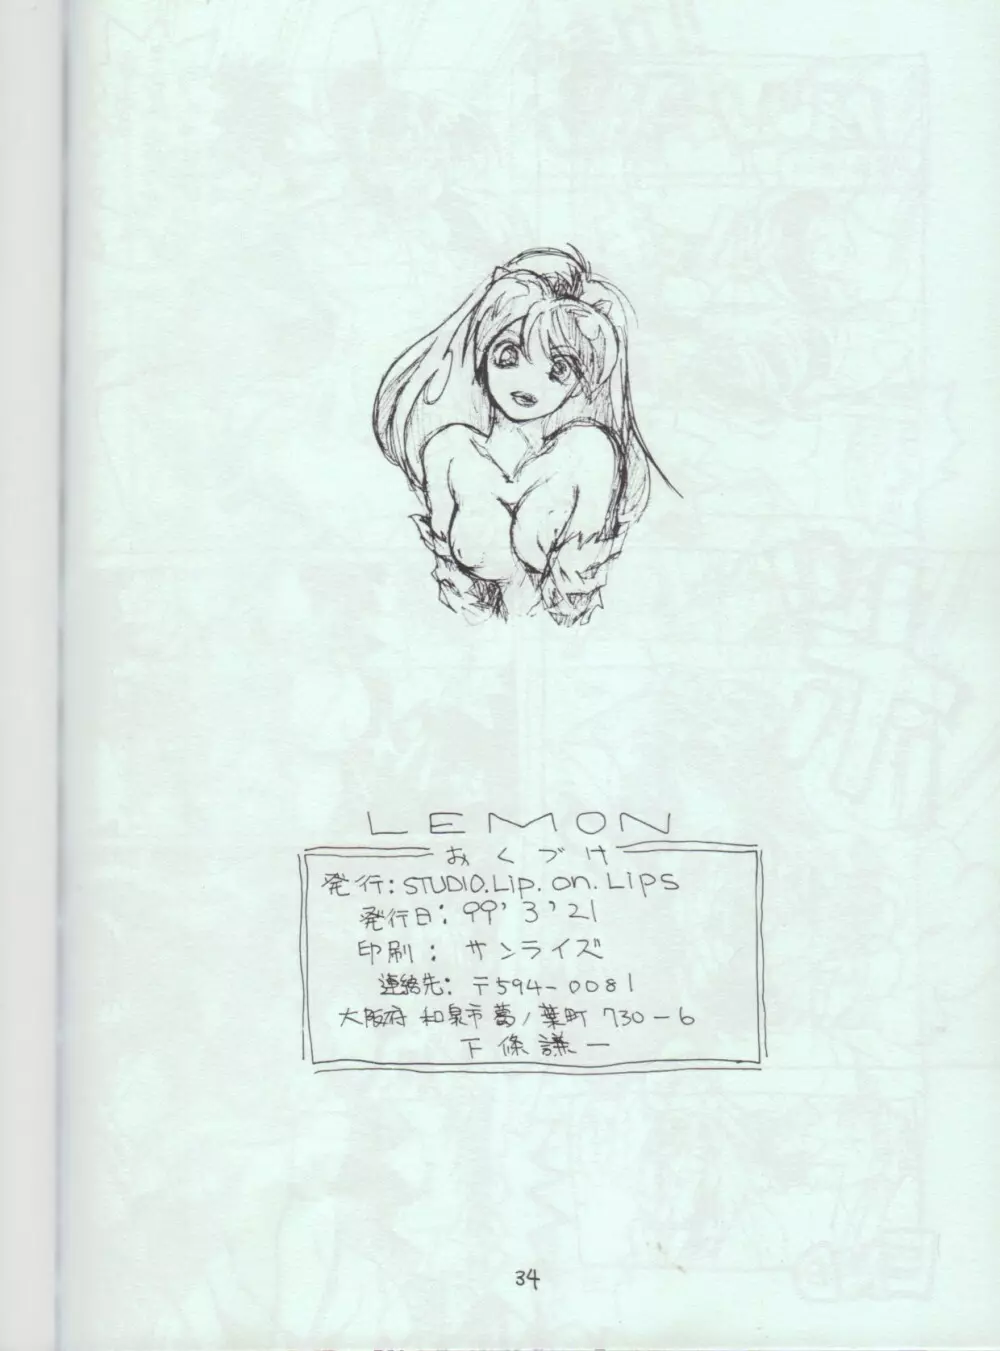 LEMON
おくづけ
発行:STUDIO.Lip.on.Lips
発行日:99'3'21
印刷:サンライズ
連絡先:〒594-0081
大阪府 和泉市 葛ノ葉町 730-6
下條謙一
34